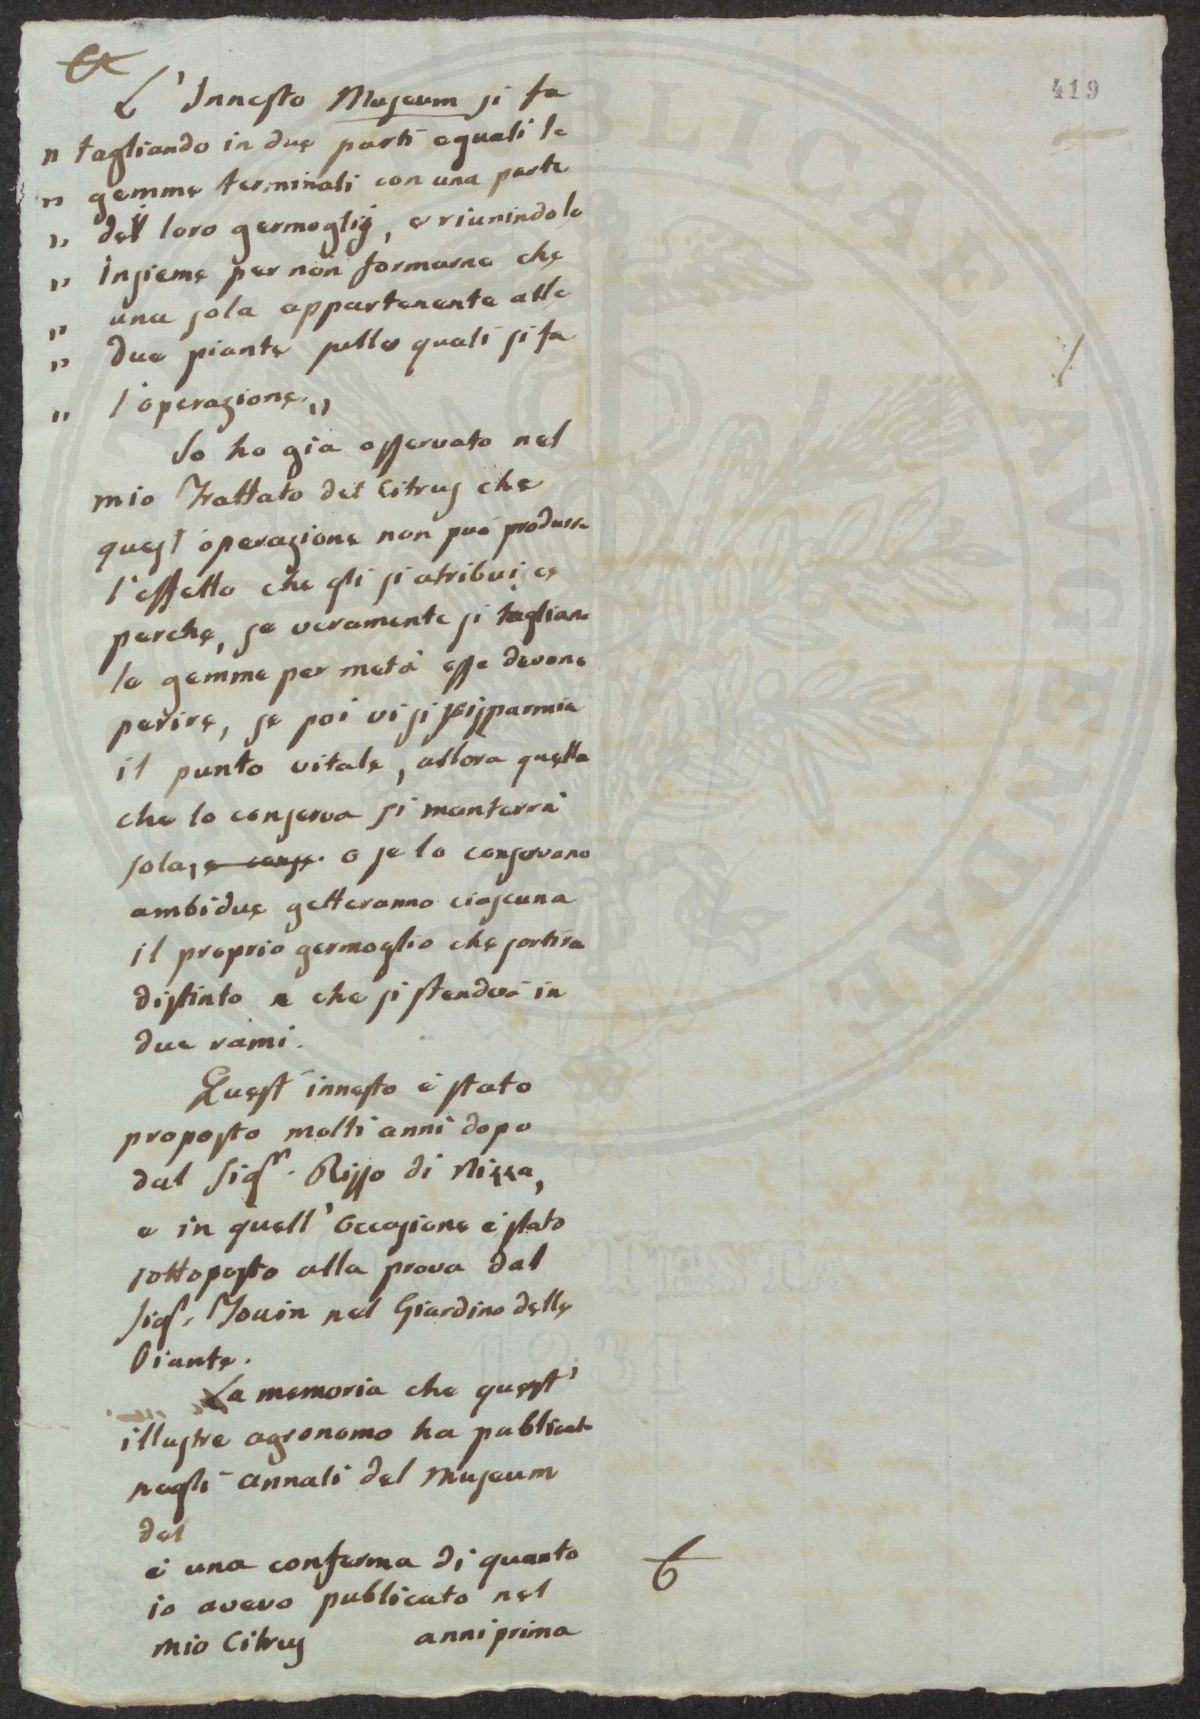 419
L'Innesto Museum si fa
" tagliando in due parti eguali le
" gemme terminali con una parte
" dei loro germogli, e riunindole
" insieme per non formarne che
" una sola appartenente alle
" due piante sulle quali si fa
" l'operazione."
Io ho gia osservato nel
mio Trattato del Citrus che
quest'operazione non può produrre
l'effetto che gli si atribuisce
perche, se veramente si tagliano
le gemme per metà esse devono
perire, se poi vi si risparmia
il punto vitale, allora quella
che lo conserva si manterrà
sola, e conse. o se lo conservano
ambidue getteranno ciascuna
il proprio germoglio che sortira
distinto e che si stenderà in
due rami.
Quest'innesto è stato
proposto molti anni dopo
dal Sigr. Risso di Nizza,
e in quell'occasione è stato
sottoposto alla prova dal
Sigr. Touin nel Giardino delle
Piante.
La memoria che quest'
illustre agronomo ha publicato
negli annali del Museum
del
è una conferma di quanto
io avevo publicato nel
mio Citrus anni prima